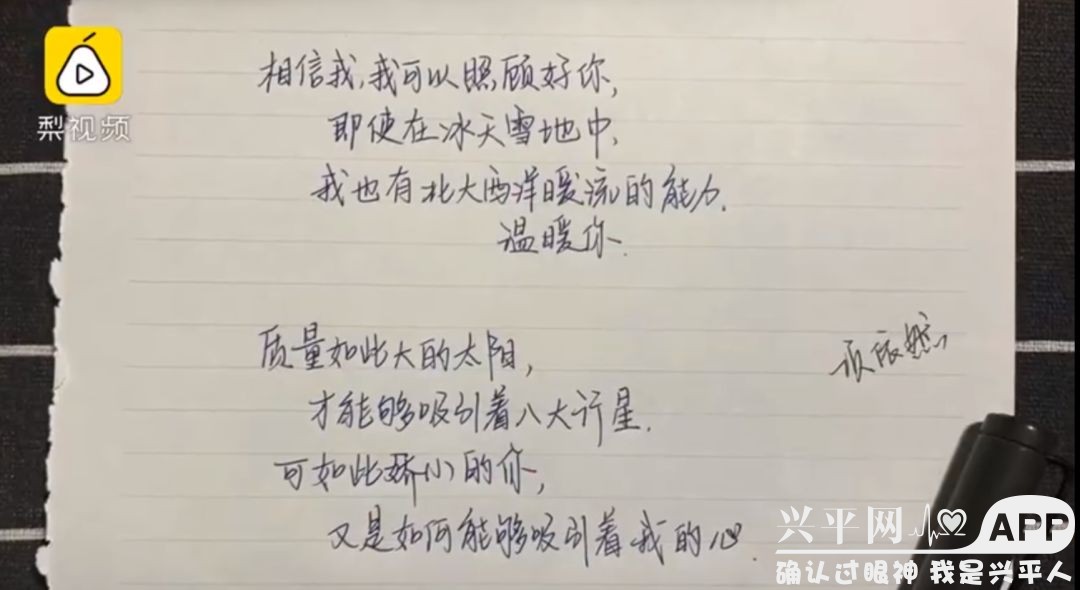 梨视频
相信我,我可以照顾好你,
即使在冰天雪地中,
我也有北大西洋暖流的能力,
温暖你.
质量如此大的太阳,
才能够吸引着八大行星.
可如此娇小的你,
又是如何能够吸引着我的心.
兴平网 APP
确认过眼神 我是兴平人